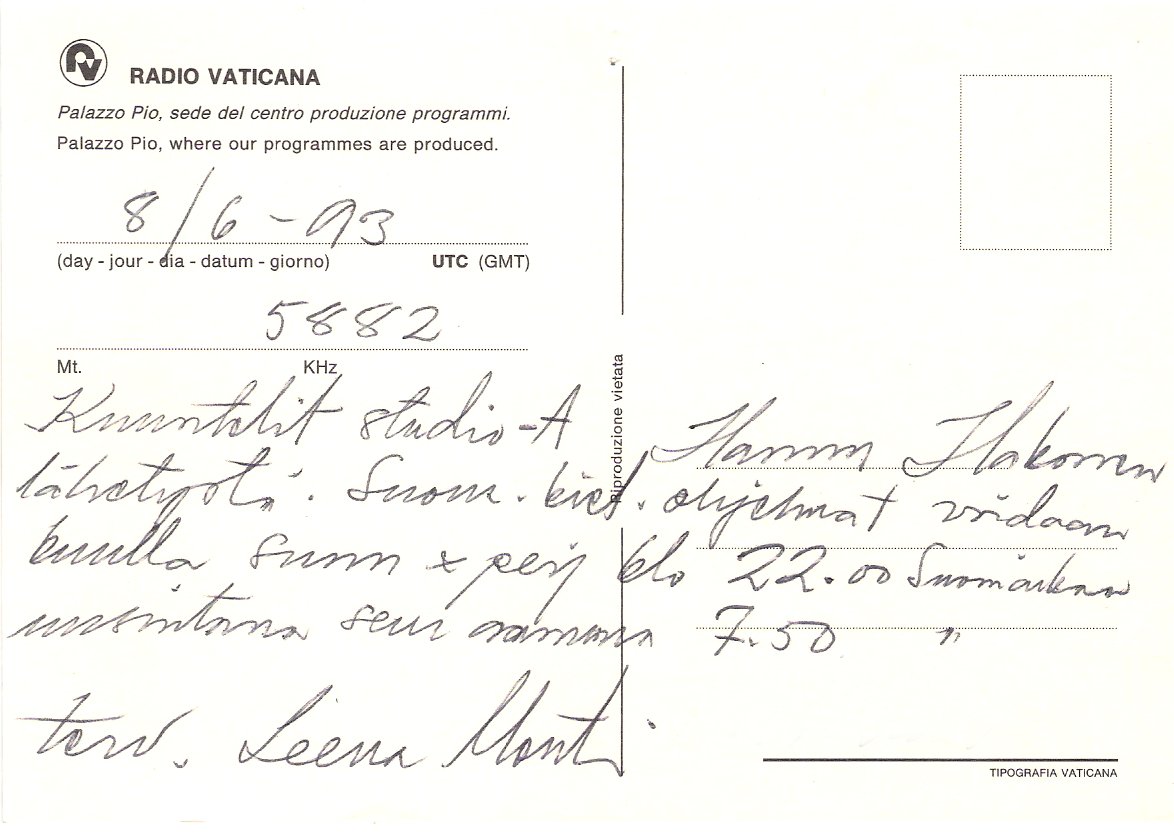 RADIO VATICANA
Palazzo Pio, sede del centro produzione programmi.
Palazzo Pio, where our programmes are produced.
8/6-93
(day - jour - dia - datum - giorno) UTC (GMT)
5882
Mt. KHz
Kuuntelit studio-A
lähetystä. Suom. kiel. ohjelmat voidaan
kuulla sunn x perj klo 22.00 Suom.aikaa
uusintana seur aamuna 7.50 "
terv. Leena
Hannu
Riproduzione vietata
TIPOGRAFIA VATICANA